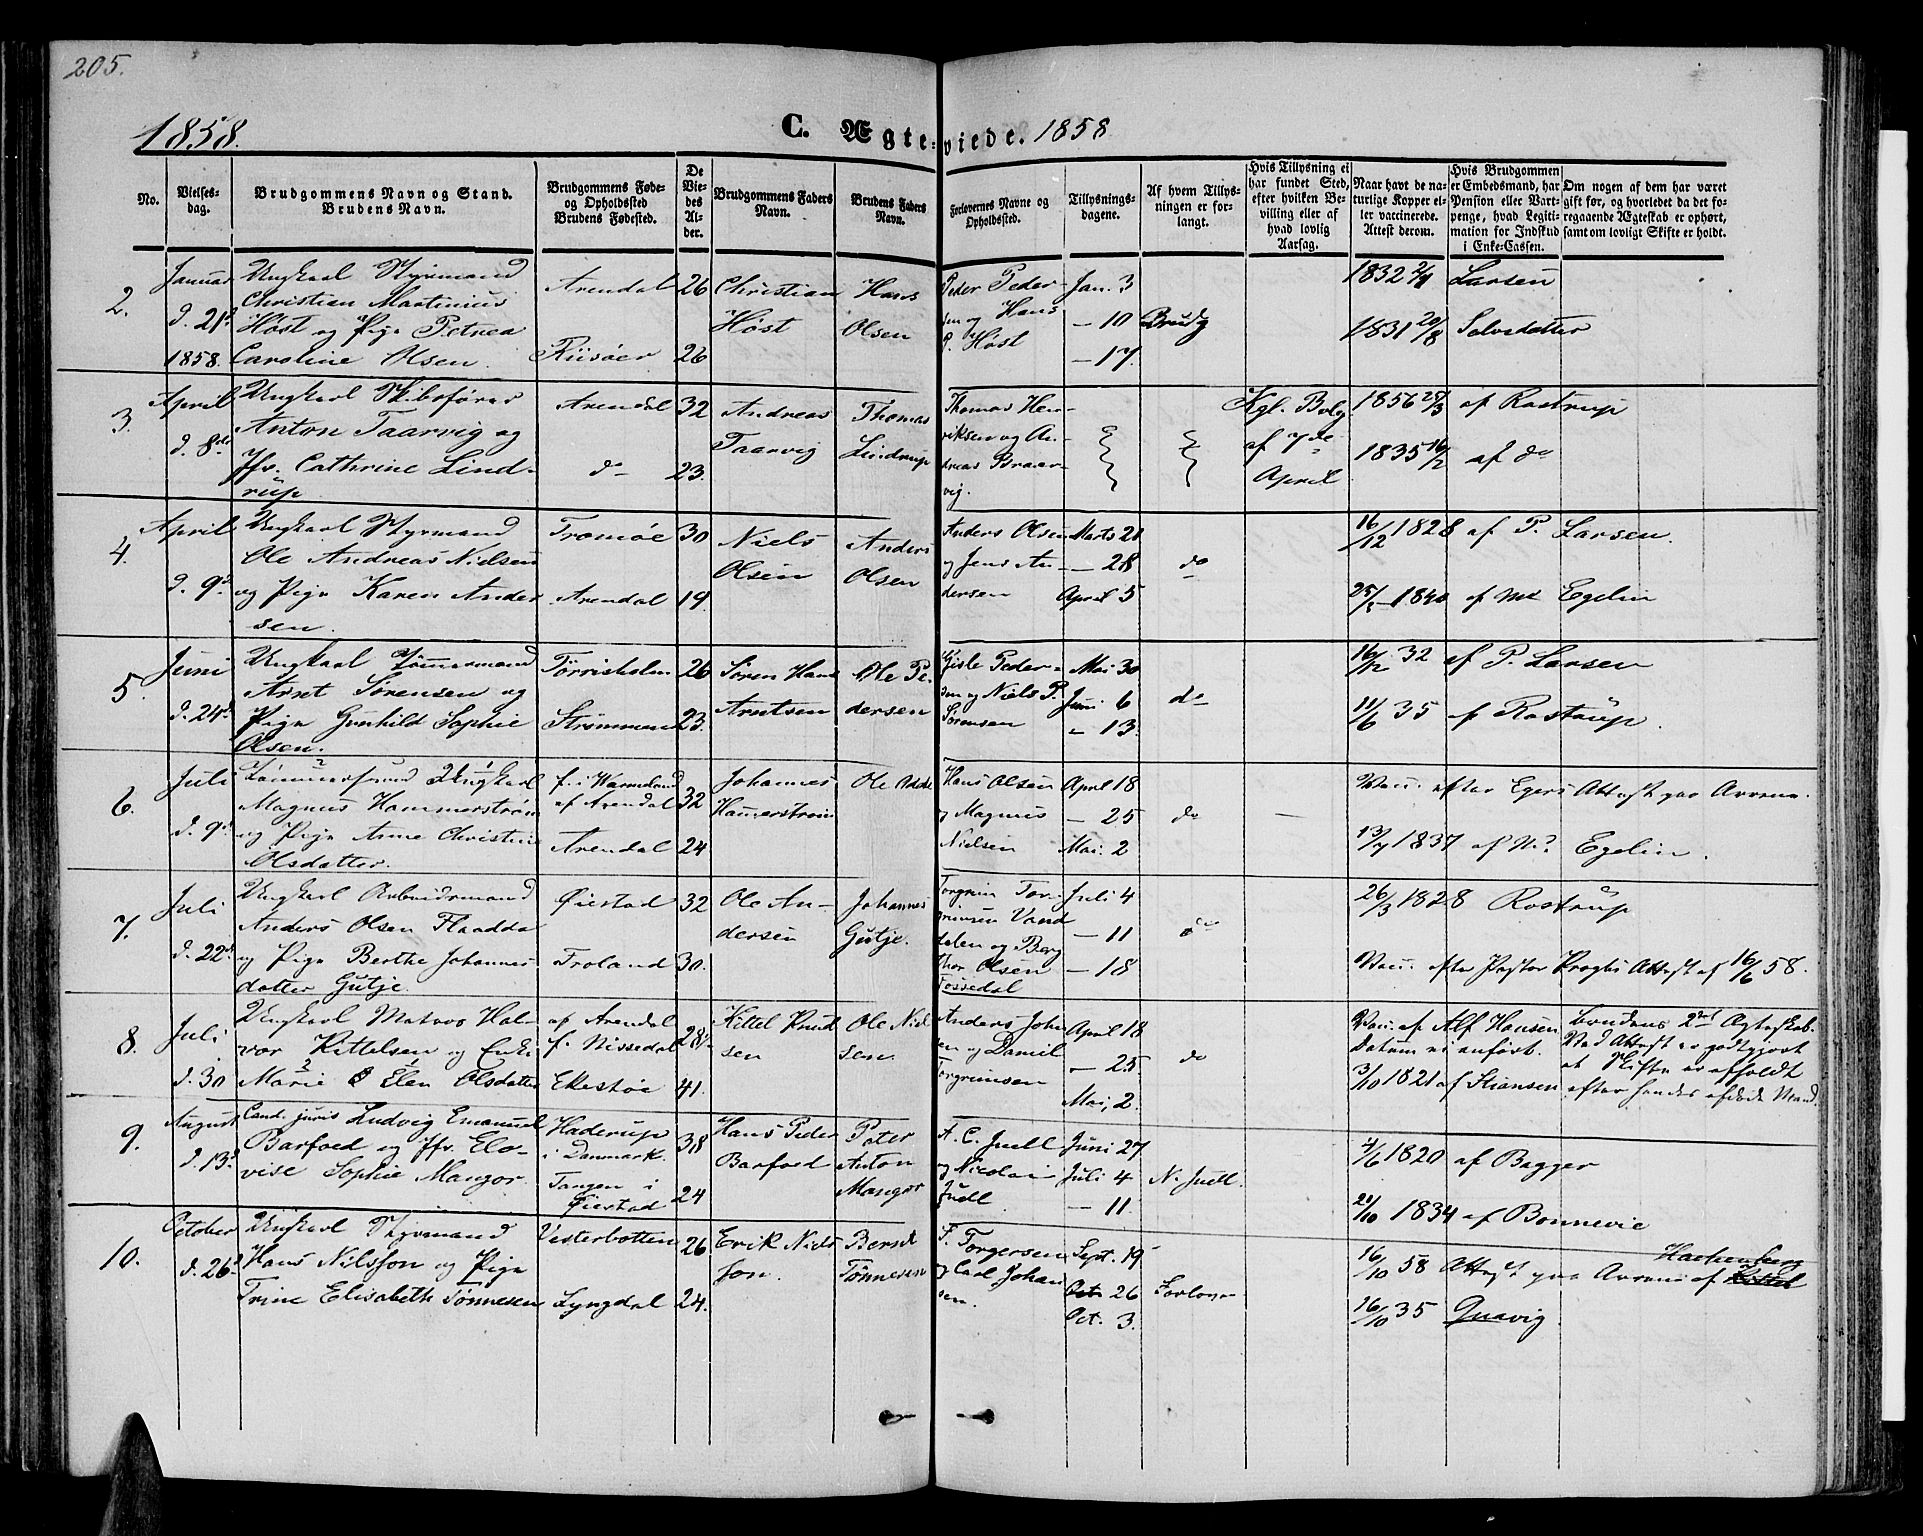 205.
1858. C. Ægteviede. 1858
No.
Vielsesdag.
Brudgommens Navn og Stand.
Brudens Navn.
Brudgommens Føde-
og Opholdssted
Brudens Fødested.
De
Vie-
des
Al-
der.
Brudgommens Faders
Navn.
Brudens Faders
Navn.
Forlovernes Navne og
Opholdssted.
Tillysnings-
dagene.
Af hvem Tillys-
ningen er for-
langt.
Hvis Tillysning ei
har fundet Sted,
efter hvilken Be-
villing eller af
hvad lovlig
Aarsag.
Naar havt de na-
turlige Kopper el-
ler vaccinerede.
Attest derom.
Hvis Brudgommen
er Embedsmand, har
Pension eller Vart-
penge, hvad Legiti-
mation for Indskud
i Enke-Cassen.
Om nogen af dem har været
gift før, og hvorledet da det fo-
regaaende Ægteskab er ophørt,
samt om lovligt Skifte er holdt.
2.
Januar
d. 21de
1858.
Ungkarl Styrmand
Christian Martinius
Høst og Pige Petrea
Caroline Olsen.
Arendal 26
Riisøer 26
Christian
Høst
Hans
Olsen
Peder Peder-
sen og Hans
P. Høst
Jan. 3
— 10
— 17.
Brudg
1832 Larsen
1831 20/8 Selvedatter
3.
April
d. 8de
Ungkarl Skibsfører
Anton Taarvig og
Jfr. Cathrine Lind-
rup
Arendal 32
do 23.
Andreas
Taarvig
Thomas
Lindrup
Thomas Hen-
riksen og An-
dreas Braar-
vig.
Kgl. Bvlg
af 7de
April
1856 25/3 af Rostrup
1835 16/2 af do
4.
April
d. 9de
Ungkarl Styrmand
Ole Andreas Nielsen
og Pige Karen Ander
sen.
Tromøe 30
Arendal 19.
Niels
Olsen
Anders
Olsen
Anders Olsen
og Jens An-
dersen
Marts 21
— 28
April 5
do
16/12 1828 af P. Larsen.
1840 af Egelin
5.
Juni
d. 24de
Ungkarl Tømmermand
Arnt Sørensen og
Pige Gunhild Sophie
Olsen.
Tørrisholm 26
Strømmen 23.
Søren Hans
Arntsen
Ole Pe-
dersen
Gisle Peder-
sen og Niels P.
Sørensen
Mai 30
Juni 6
— 13.
do
32 af P. Larsen
11/6 35 af Rostrup.
6.
Juli
d. 9de
Tømmersvend Ungkarl
Magnus Hammerstrøm
og Pige Anne Christine
Olsdatter.
f. i Warmland
af Arendal 32
Arendal 24
Johannes
Hammerstrøm
Ole
Hans Olsen
og Magnus
Nielsen
April 18
— 25
Mai. 2
do
—
Vacc. efter Egers Attest paa
13/7 1837 af Egelin.
7.
Juli
d. 22de
Ungkarl Arbeidsmand
Anders Olsen Fladda
og Pige Berthe Johannes
datter Gutje.
Øiestad 32
Froland 30.
Ole An-
dersen
Johannes
Gutje.
Torgrim Tor-
grimsen Vand
dalen og Berg
thor Olsen
Fossedal
Juli 4
— 11
— 18
do
26/3 1828 Rostrup
Vacc. efter Pastor Attest af 16/6 58.
8.
Juli
d. 30
Ungkarl Matros Hal-
vor Kittelsen og Enke
Marie Elen Olsdatter
af Arendal
f. Nissedal 28
Ekestøe 41.
Kittel Knud
sen
Ole Niel
sen
Anders John
sen og Daniel
Torgrimsen
April 18
— 25
Mai, 2.
do
Vacc. af Alf Hansen
Datum ei anført.
3/10 1821 af Stiansen
Brudens 2det Ægteskab.
Ved Attest er godtgjort
at Skifte er afholdt
efter hendes afdøde Mand.
9.
August
d. 13de
Cand. juris Ludvig Emanuel
Barfoed og Jfr. Elo-
vise Sophie Mangor.
Haderup
i Danmark. 38
Tangen i
Øiestad 24
Hans Peder
Barfoed
Peter
Anton
Mangor
A. C. Juell
og Nicolai
Juell
Juni 27
Juli 4
— 11
N. Juell.
4/6 1820 af Bagger
1834 af Bonnevie
10.
October
d. 26de
Ungkarl Styrmand
Hans Nilsson og Pige
Trine Elisabeth Tønnesen
Vesterbotten 26
Lyngdal 24.
Erik Niels
son.
Bernt
Tønnesen
F. Torgersen
og Carl Johan
sen.
Sept. 19
Oct 26
Oct. 3.
Forlover
16/10 58 Attest paa af
16/10 35 Quavig